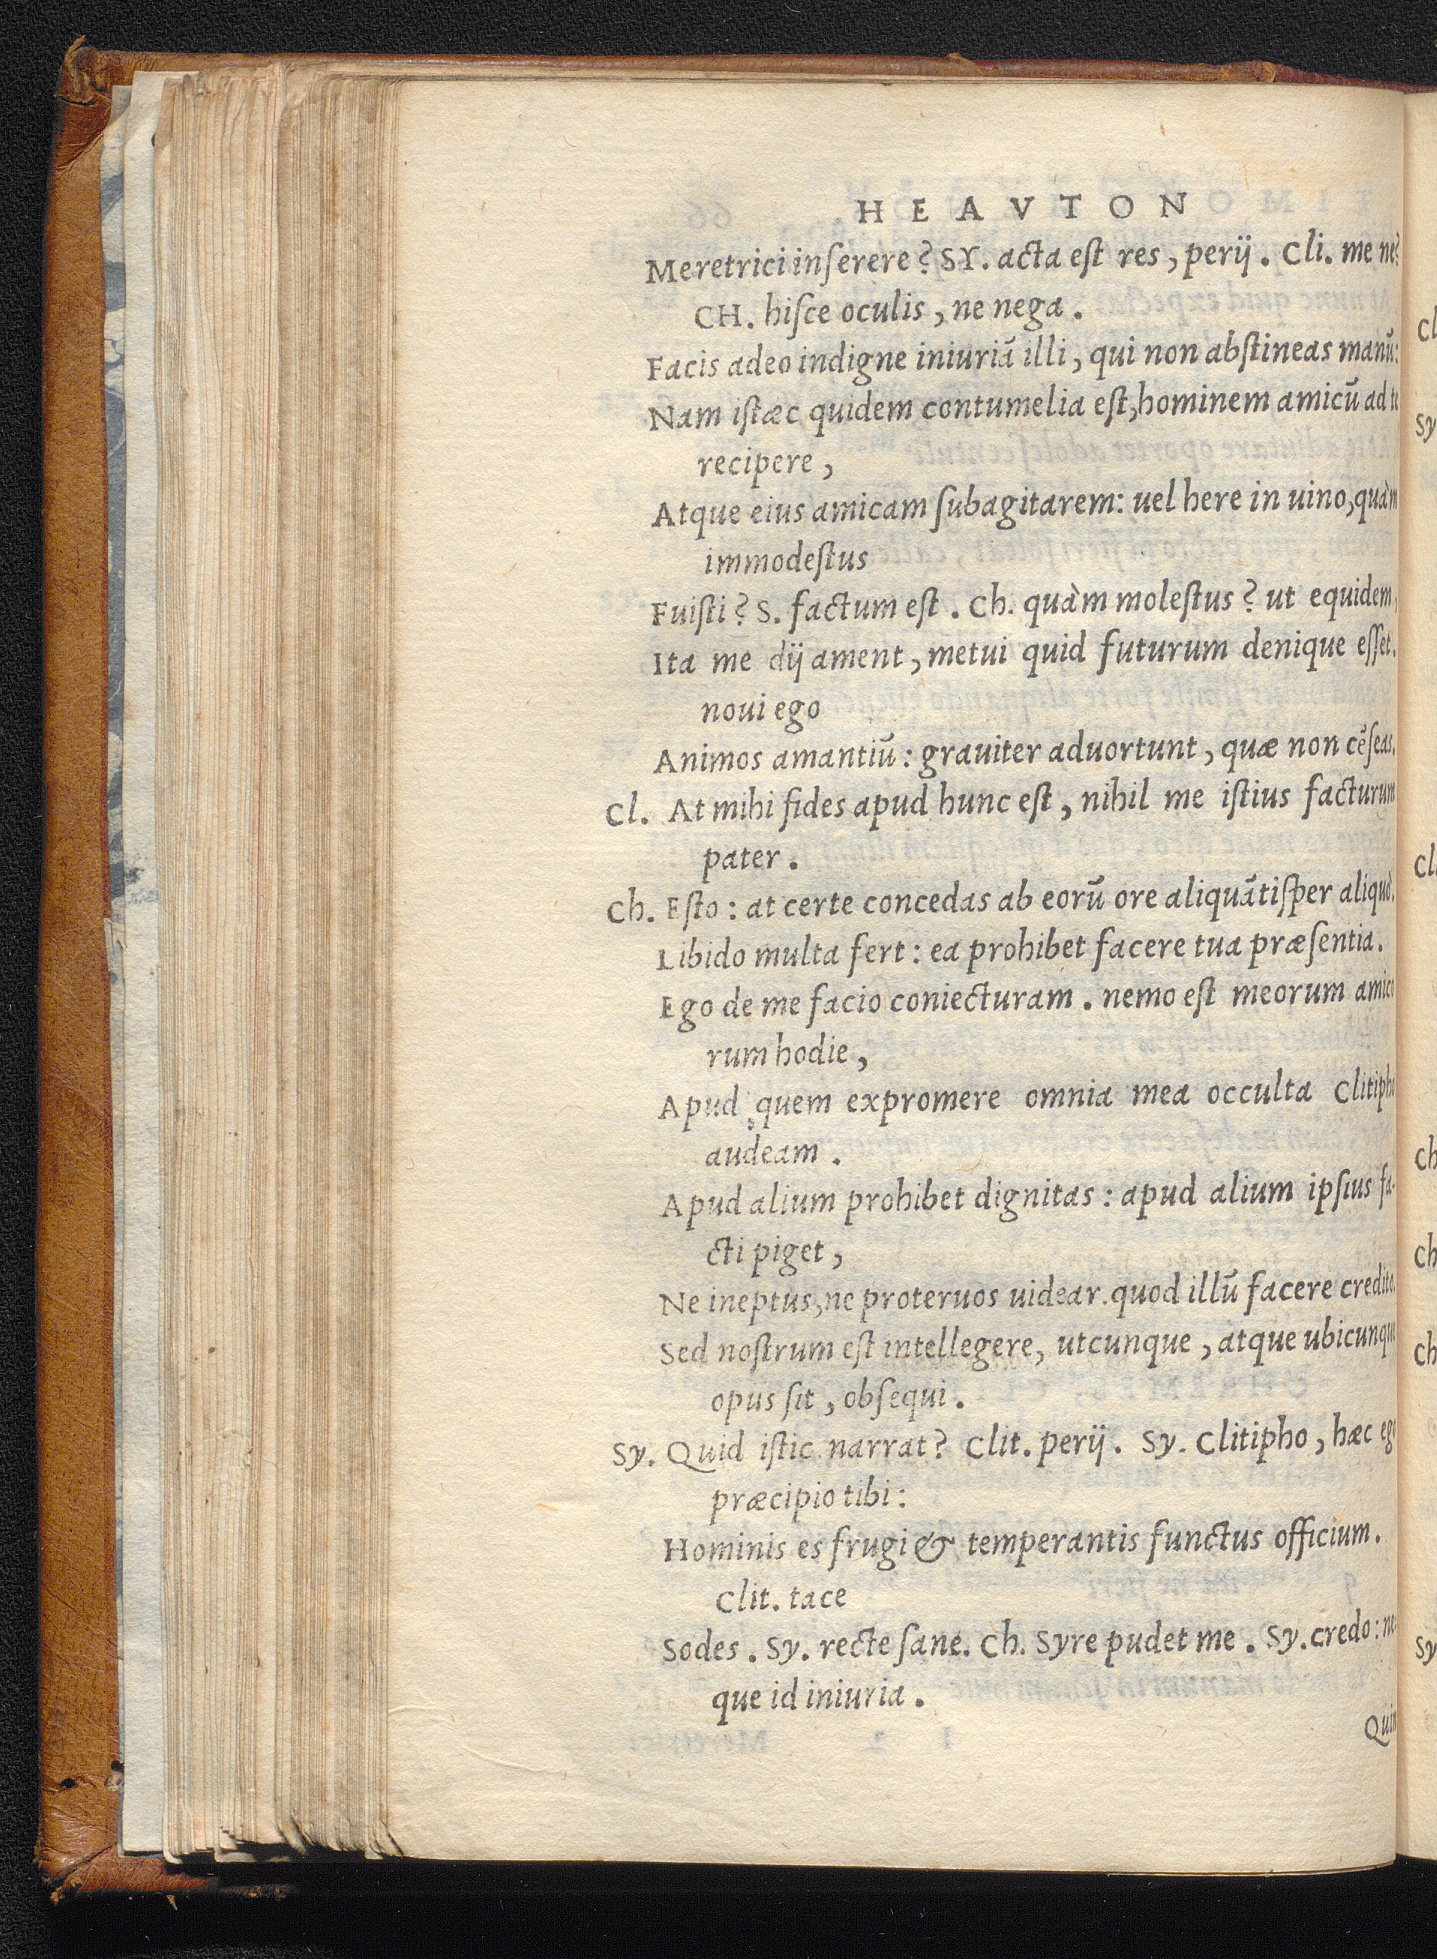 HEAVTON
Meretrici inserere? SY. acta est res, perij. Cli. me ne?
CH. hisce oculis, ne nega.
Facis adeo indigne iniuriā illi, qui non abstineas manū:
Nam istæc quidem contumelia est, hominem amicū ad te
recipere,
Atque eius amicam subagitarem: uel here in uino, quàm
immodestus
Fuisti? S. factum est. Ch. quàm molestus? ut equidem,
Ita me dij ament, metui quid futurum denique esset.
noui ego
Animos amantiū: grauiter aduortunt, quæ non cēseas.
Cl. At mihi fides apud hunc est, nihil me istius facturum
pater.
Ch. Esto: at certe concedas ab eorū ore aliquātisper aliquò.
Libido multa fert: ea prohibet facere tua præsentia.
Ego de me facio coniecturam. nemo est meorum amico
rum hodie,
Apud quem expromere omnia mea occulta Clitipho
audeam.
Apud alium prohibet dignitas: apud alium ipsius fa-
cti piget,
Ne ineptus, ne proteruos uidear. quod illū facere credito.
Sed nostrum est intellegere, utcunque, atque ubicunque
opus sit, obsequi.
Sy. Quid istic narrat? Clit. perij. Sy. Clitipho, hæc ego
præcipio tibi:
Hominis es frugi & temperantis functus officium.
Clit. tace
Sodes. Sy. recte sane. Ch. Syre pudet me. Sy. credo: ne-
que id iniuria.
Quin
Cl
Sy
Cl.
Ch
Ch
Ch
Sy